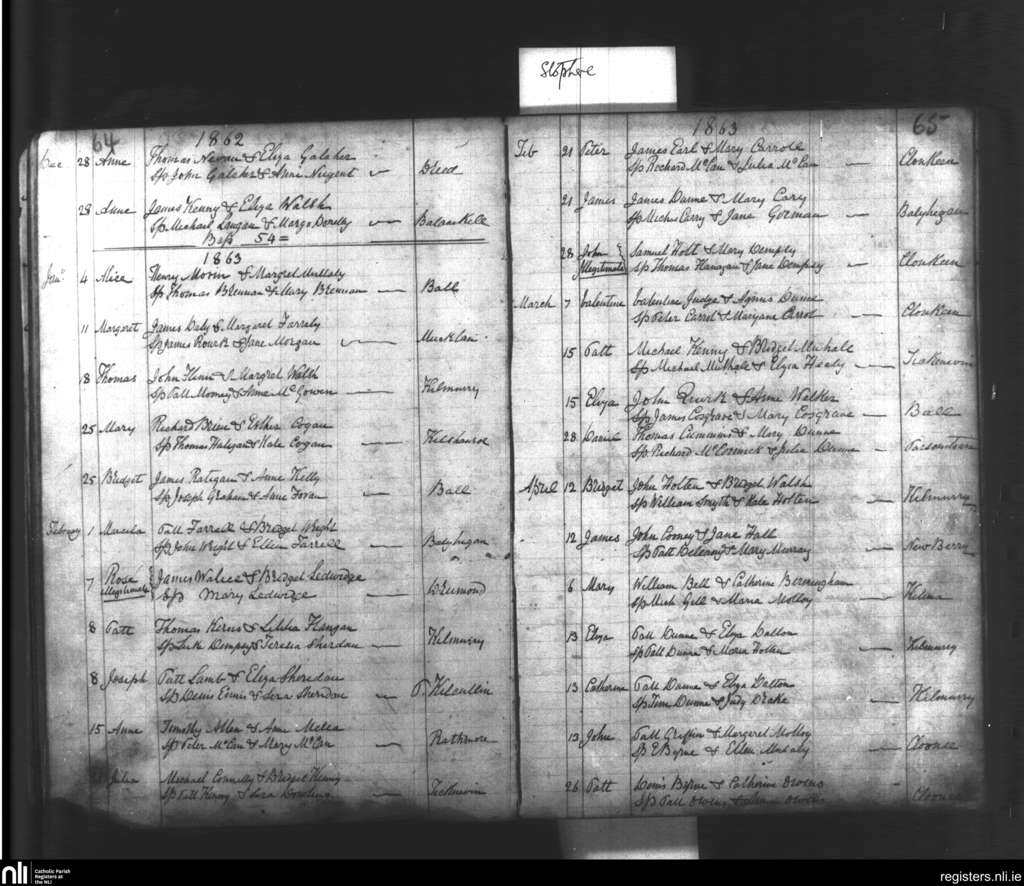 Stophee
64
1862
Dec 28 Anne Thomas Nevan & Eliza Galaher
Sp John Galaher & Anne Nugent
28 Anne James Kenny & Eliza Walsh
Sp Michael Langan & Margt Dorelly Balnakill
Bapˢ 54 =
1863
Janʸ 4 Alice Henry Moran & Margret Mullaly
Sp Thomas Brennan & Mary Brennan Ball
11 Margaret James Daly & Margaret Farrely
Sp James Rourk & Jane Morgan Mucklan
18 Thomas John Flinn & Margret Walsh
Sp Patt Mooney & Anne McGowen Kilmurry
25 Mary Richard Brien & Esther Cogan
Sp Thomas Haligan & Kate Cogan
25 Bridget James Ratigan & Anne Kelly
Sp Joseph Graham & Anne Foran Ball
February 1 Patt Farrell & Bridget Wright
Sp John Wright & Ellen Farrell Balyhegan
7 Rose James Walice & Bridget Ledwidge
illegitimate Sp Mary Ledwidge
8 Patt Thomas Kerns & Flangan
Sp Luke Dempsy & Teresia Sherdan Kilmurry
8 Joseph Patt Lamb & Eliza Sheridan
Sp Denis Ennis & Sera Sheridan T. Kilcullin
15 Anne Timothy Allen & Anne Melia
Sp Peter McCan & Mary McCan Rathmore
Julia Michael Connelly & Bridget Kenny
Sp Patt Kenny & Sera Dowling Ticknevin
65
1863
Feb 21 Peter James Earl & Mary Carroll
Sp Richard McCan & Julia McCan Clonkeen
21 James James Dunne & Mary Cary
Sp Michs Carry & Jane Gorman Balyhegan
28 John Samuel Holt & Mary Dempsy
illegitimate Sp Thomas Flanagan & Jane Dempsy Clonkeen
March 7 Valentine Valentine Judge & Agnus Dunne
Sp Peter Carrol & Maryane Carrol Clonkeen
15 Patt Michael Kenny & Bridget Mulhall
Sp Michael Mulhall & Eliza Healy Ticknevin
15 Eliza John Quirk & Anne Walker
Sp James Cosgrave & Mary Cosgrave Ball
28 Daniel Thomas Cummins & Mary Dunne
Sp Richard McCormick & Julia Dunne Parsonstown
April 12 Bridget John Holten & Bridget Walsh
Sp William Smyth & Kate Holten Kilmurry
12 James John Cooney & Jane Hall
Sp Patt Delaney & Mary Murray New Berry
6 Mary William Bell & Catherine Bermingham
Sp Mich Gill & Maria Molloy Kilina
13 Eliza Patt Dunne & Eliza Dalton
Sp Patt Dunne & Maria Holten Kilmurry
13 Catherine Patt Dunne & Eliza Dalton
Sp Tim Dunne & Judy Drake Kilmurry
13 John Patt Griffin & Margaret Molloy
Sp E Byrne & Ellen Mulaly Cloonce
26 Patt Denis Byrne & Catherine Owens
Sp Patt Owens & Owens Cloonce
nli Catholic Parish Registers at the NLI
registers.nli.ie